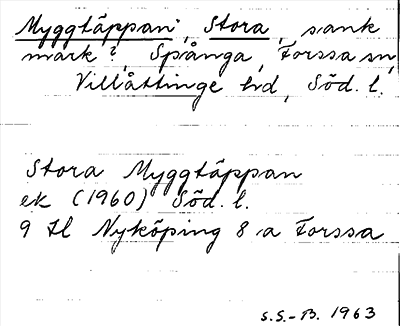 Myggtäppan, Stora, sank
mark?, Spånga, Forssa sn,
Villåttinge hd, Söd. l.
Stora Myggtäppan
ek (1960) Söd. l.
9 H Nyköping 8 a Forssa
S.S.-B. 1963